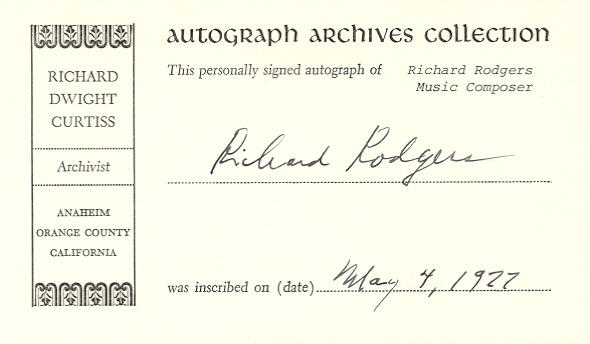 autograph archives collection
RICHARD
DWIGHT
CURTISS
Archivist
ANAHEIM
ORANGE COUNTY
CALIFORNIA
This personally signed autograph of Richard Rodgers
Music Composer
Richard Rodgers
was inscribed on (date) May 4, 1977